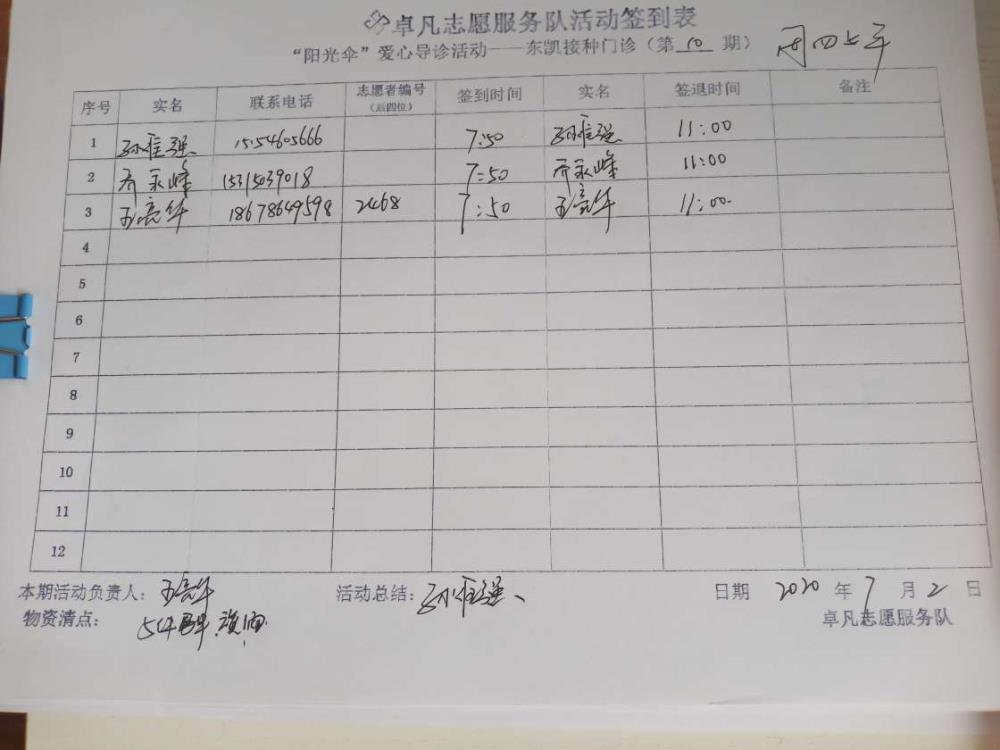 卓凡志愿服务队活动签到表
“阳光伞”爱心导诊活动——东凯接种门诊（第 10 期） 周四上午
序号 实名 联系电话 志愿者编号（后四位） 签到时间 实名 签退时间 备注
1 孙維强 15154605666 7:50 孙維强 11:00
2 齐永峰 15315039018 7:50 齐永峰 11:00
3 王亮华 18678649598 2468 7:50 王亮华 11:00
4
5
6
7
8
9
10
11
12
本期活动负责人：王亮华 活动总结：孙維强 日期 2020 年 7 月 2 日
物资清点： 卓凡志愿服务队